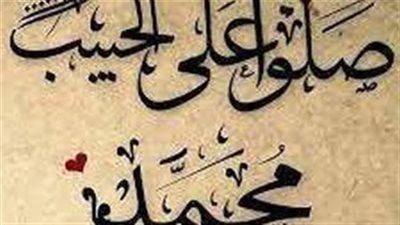 صَلُّوا عَلَى الْحَبِيبِ
مُحَمَّد